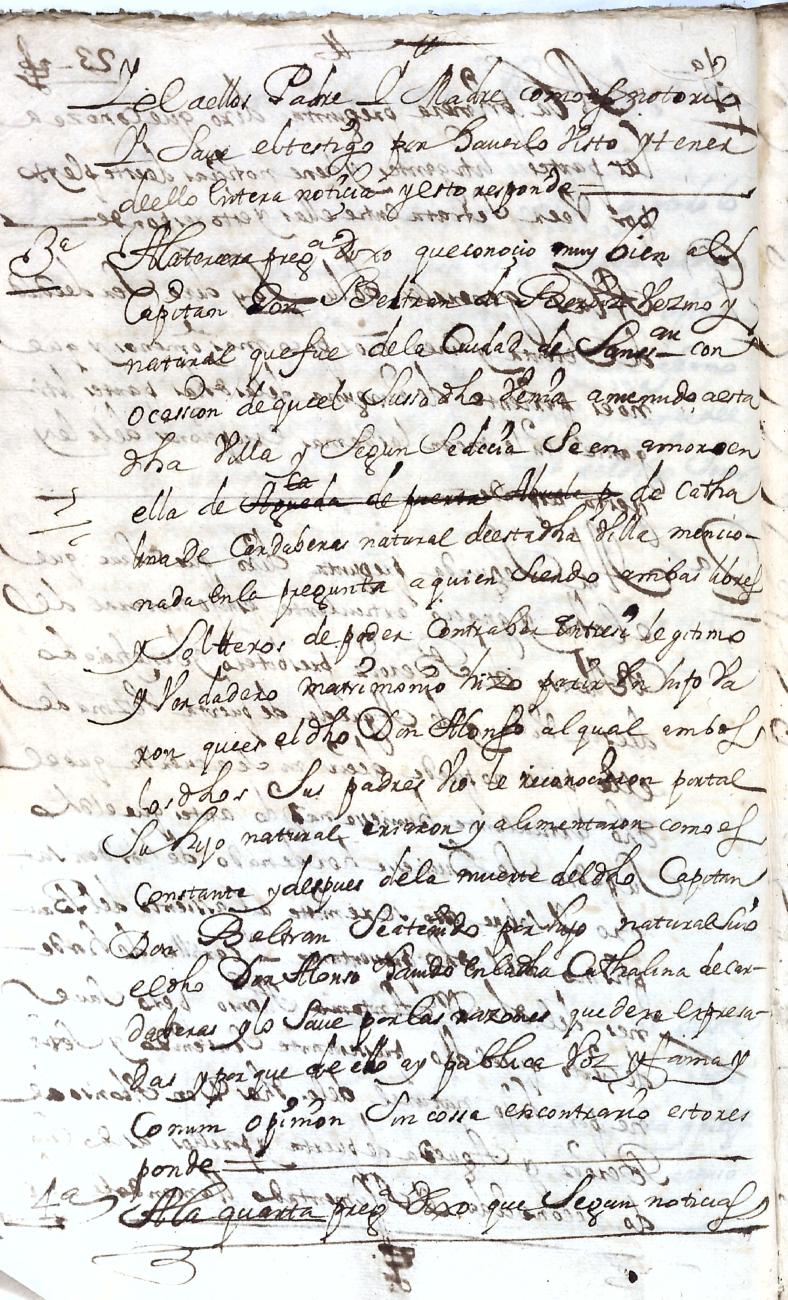 y el a ellos Padre Y Madre como es notorio
Y Save el testigo por Haverlo Visto y tener
de ello Entera noticia y esto responde
3ª A la tercera pregª Dixo que conocio muy bien al
Capitan Don Beltran de Vezino y
natural que fue de la Ciudad de San con
ocassion de que el Susodho Venia a menudo a esta
dha Villa y Segun Se decia Se en amoro en
ella de la de Catha
lina de Cardaberas natural de esta dha Villa mencio-
nada en la pregunta a quien Siendo ambos libres
y Solteros de poder Contraher Entresi legitimo
y Verdadero matrimonio hizo parir Un hijo Va
ron que es el dho Don Alonso al qual ambos
los dhos Sus padres Vio le reconocieron por tal
Su hijo natural criaron y alimentaron como es
Constante y despues de la muerte del dho Capitan
Don Beltran Se a tenido por hijo natural Suio
el dho Don Alonso havido En la dha Cathalina de Car-
daberas y lo Save por las razones que deja expresa-
das y por que de ello ay publica Voz y fama y
Comun opinion Sin cossa en contrario esto res
ponde
4ª A la quarta pregª Dixo que Segun noticias